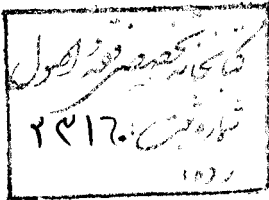 کتابخانه تخصصی فقه و اصول
شماره ثبت: ۲۳۱۶۰